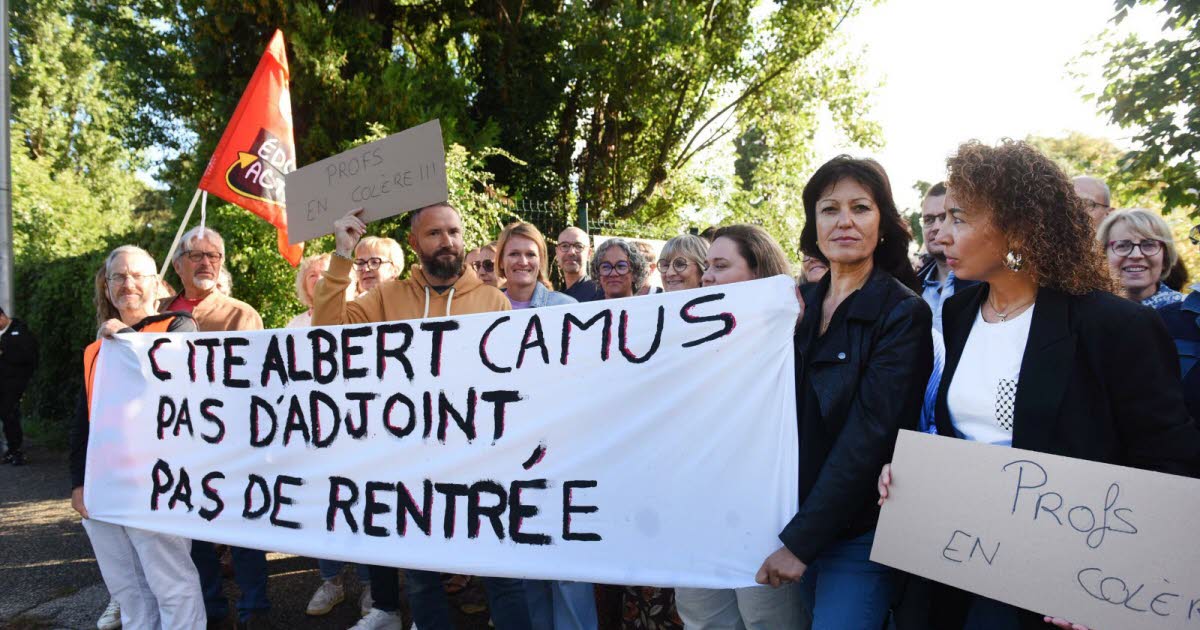 ÉDUC
ACTION
PROFS
EN COLÈRE !!!
CITE ALBERT CAMUS
PAS D'ADJOINT
PAS DE RENTRÉE
PROFS
EN COLÈR